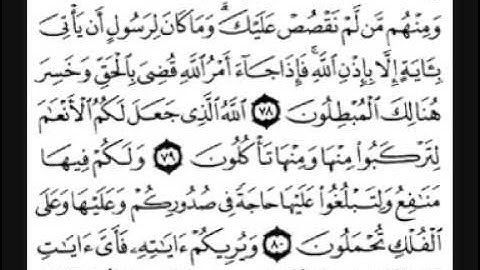 وَمِنْهُم مَّن لَّمْ نَقْصُصْ عَلَيْكَ ۗ وَمَا كَانَ لِرَسُولٍ أَن يَأْتِىَ
بِـَٔايَةٍ إِلَّا بِإِذْنِ ٱللَّهِ ۚ فَإِذَا جَآءَ أَمْرُ ٱللَّهِ قُضِىَ بِٱلْحَقِّ وَخَسِرَ
هُنَالِكَ ٱلْمُبْطِلُونَ ٧٨ ٱللَّهُ ٱلَّذِى جَعَلَ لَكُمُ ٱلْأَنْعَٰمَ
لِتَرْكَبُوا۟ مِنْهَا وَمِنْهَا تَأْكُلُونَ ٧٩ وَلَكُمْ فِيهَا
مَنَٰفِعُ وَلِتَبْلُغُوا۟ عَلَيْهَا حَاجَةً فِى صُدُورِكُمْ وَعَلَيْهَا وَعَلَى
ٱلْفُلْكِ تُحْمَلُونَ ٨٠ وَيُرِيكُمْ ءَايَٰتِهِۦ فَأَىَّ ءَايَٰتِ